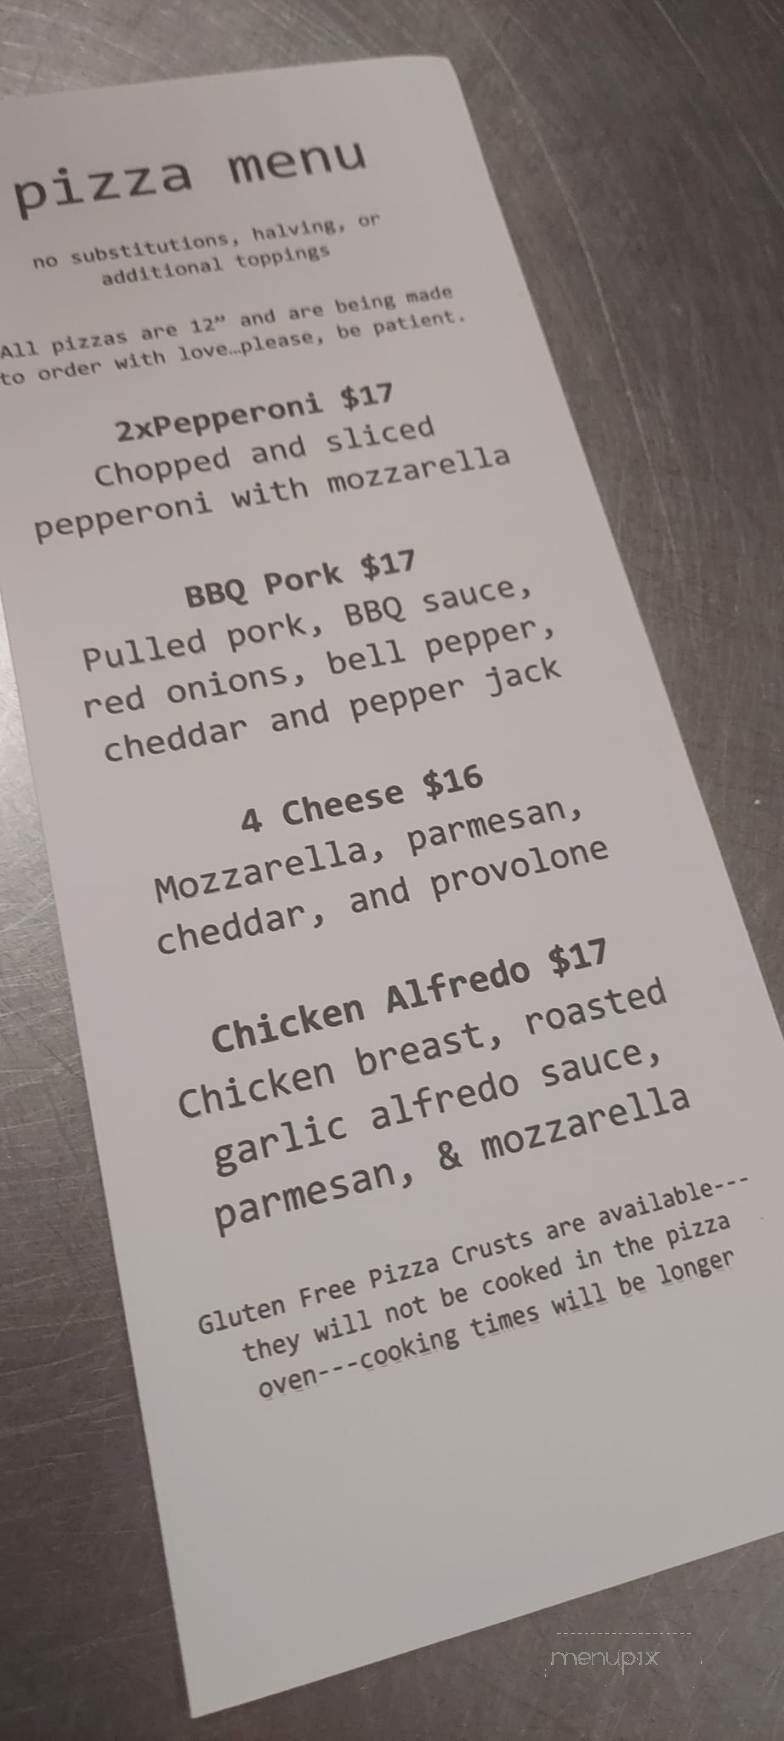 pizza menu
no substitutions, halving, or
additional toppings
All pizzas are 12” and are being made
to order with love…please, be patient.
2xPepperoni $17
Chopped and sliced
pepperoni with mozzarella
BBQ Pork $17
Pulled pork, BBQ sauce,
red onions, bell pepper,
cheddar and pepper jack
4 Cheese $16
Mozzarella, parmesan,
cheddar, and provolone
Chicken Alfredo $17
Chicken breast, roasted
garlic alfredo sauce,
parmesan, & mozzarella
Gluten Free Pizza Crusts are available---
they will not be cooked in the pizza
oven---cooking times will be longer
menupix